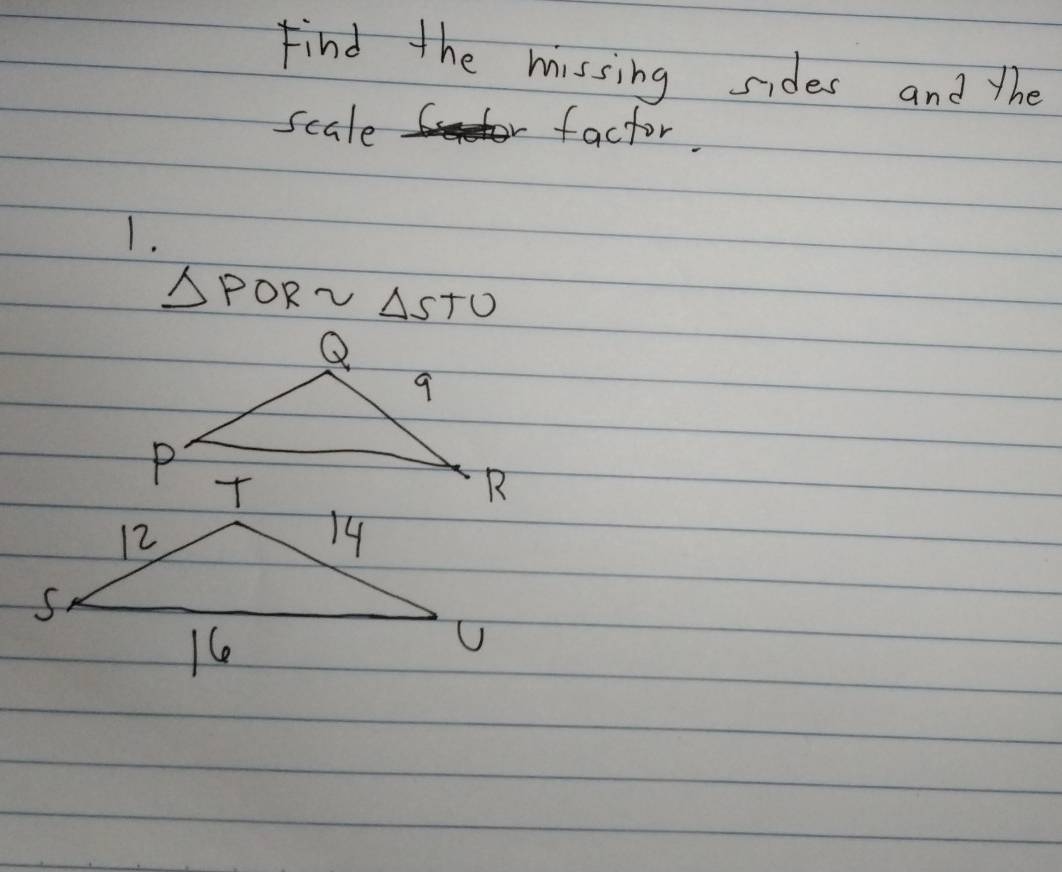 Find the missing sides and the
scale factor.
1.
△PQR ~ △STU
Q
9
P
R
T
12
14
S
U
16